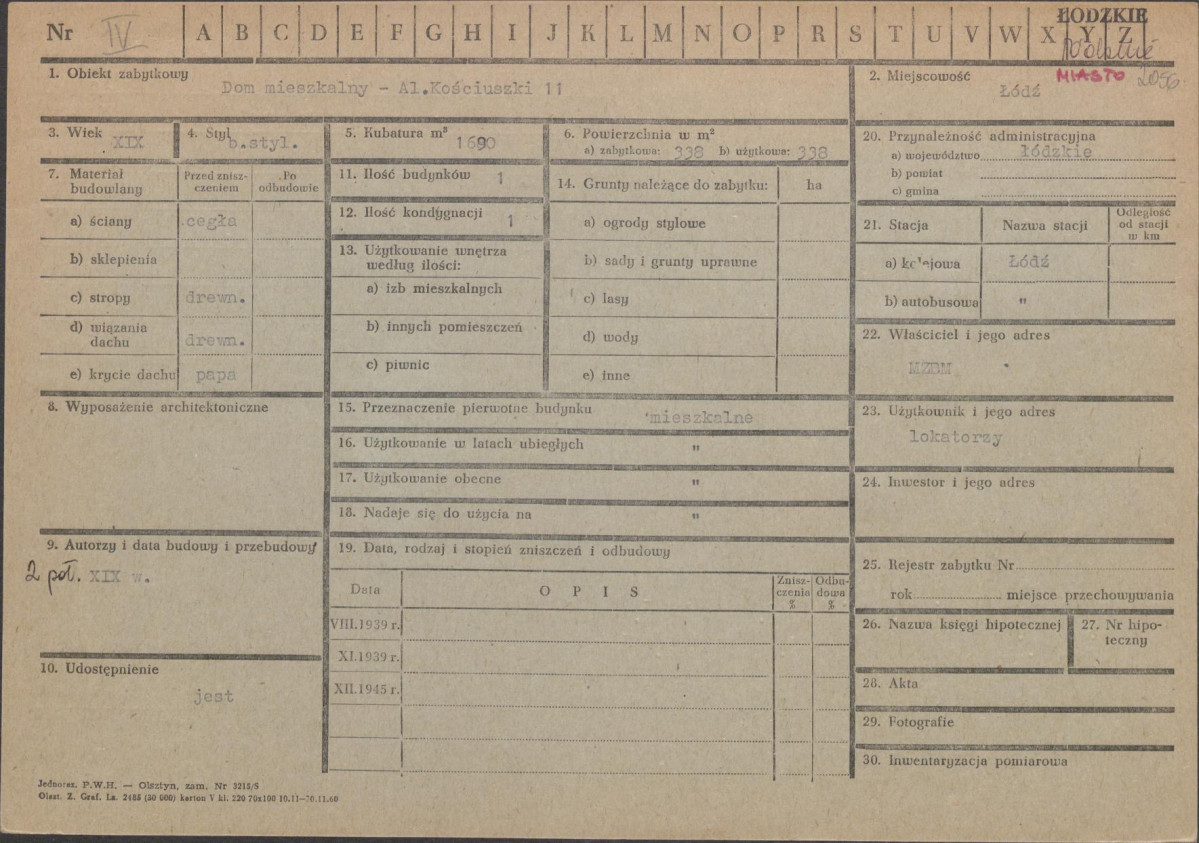 Nr IV A B C D E F G H I J K L M N O P R S T U V W X Y Z
ŁÓDZKIE
MIASTO 2056
1. Obiekt zabytkowy
Dom mieszkalny - Al.Kościuszki 11
2. Miejscowość
Łódź
3. Wiek XIX
4. Styl b.styl.
5. Kubatura m³ 1690
6. Powierzchnia w m²
a) zabytkowa: 338 b) użytkowa: 338
7. Materiał budowlany
Przed zniszczeniem
Po odbudowie
a) ściany cegła
b) sklepienia
c) stropy drewn.
d) wiązania dachu drewn.
e) krycie dachu papa
8. Wyposażenie architektoniczne
9. Autorzy i data budowy i przebudowy
2 poł. XIX w.
10. Udostępnienie
jest
11. Ilość budynków 1
12. Ilość kondygnacji 1
13. Użytkowanie wnętrza
według ilości:
a) izb mieszkalnych
b) innych pomieszczeń
c) piwnic
14. Grunty należące do zabytku: ha
a) ogrody stylowe
b) sady i grunty uprawne
c) lasy
d) wody
e) inne
15. Przeznaczenie pierwotne budynku mieszkalne
16. Użytkowanie w latach ubiegłych "
17. Użytkowanie obecne "
18. Nadaje się do użycia na "
19. Data, rodzaj i stopień zniszczeń i odbudowy
Data O P I S Zniszczenia % Odbudowa %
VIII.1939 r.
XI.1939 r.
XII.1945 r.
20. Przynależność administracyjna
a) województwo łódzkie
b) powiat
c) gmina
21. Stacja Nazwa stacji Odległość od stacji w km
a) kolejowa Łódź
b) autobusowa "
22. Właściciel i jego adres
MZBM
23. Użytkownik i jego adres
lokatorzy
24. Inwestor i jego adres
25. Rejestr zabytku Nr
rok miejsce przechowywania
26. Nazwa księgi hipotecznej
27. Nr hipoteczny
28. Akta
29. Fotografie
30. Inwentaryzacja pomiarowa
Jednoraz. P.W.H. — Olsztyn, zam. Nr 3215/S
Olszt. Z. Graf. Lz. 2485 (30 000) karton V kl. 220 70x100 10.11—30.11.60